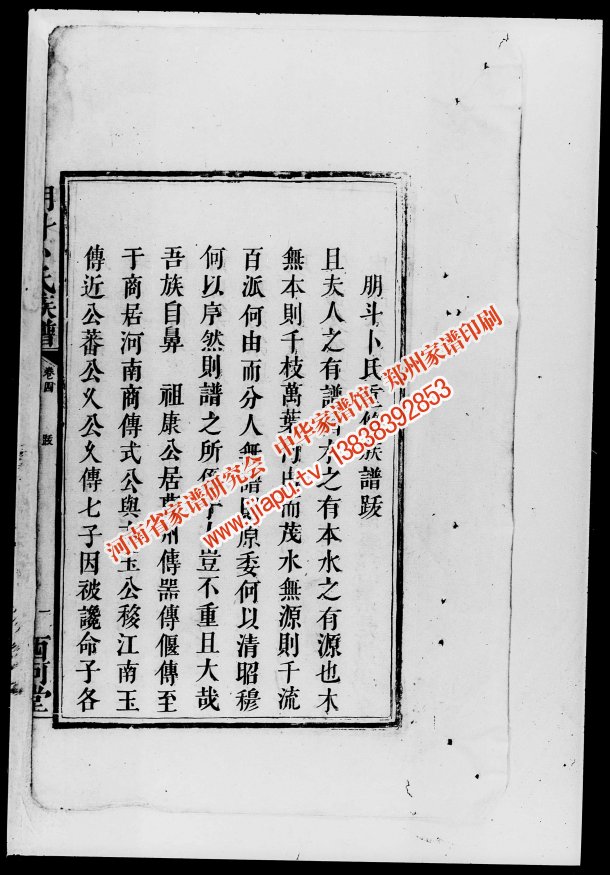 朋斗卜氏重修族譜跋
且夫人之有譜 水之有本水之有源也木
無本則千枝萬葉何由而茂水無源則千流
百派何由而分人無譜 原委何以清昭穆
何以序然則譜之所 豈不重且大哉
吾族自鼻 祖康公居 州傳器傳偃傳至
于商居河南商傳式公與 玉公移江南玉
傳近公蕃公义公义傳七子因被讒命子各
朋斗卜氏族譜
卷四
跋
一
西河堂
河南省家谱研究会 中华家谱馆 郑州家谱印刷
www.jiapu.tv 13838392853